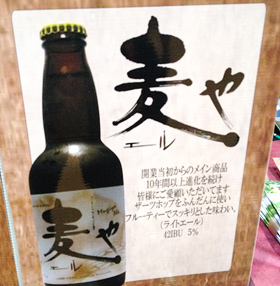 麦や
エール
開業当初からのメイン商品
10年間以上進化を続け
皆様にご愛顧いただいてます
ザーツホップをふんだんに使い
フルーティーでスッキリとした味わい。
(ライトエール)
42IBU 5%
麦や
エール